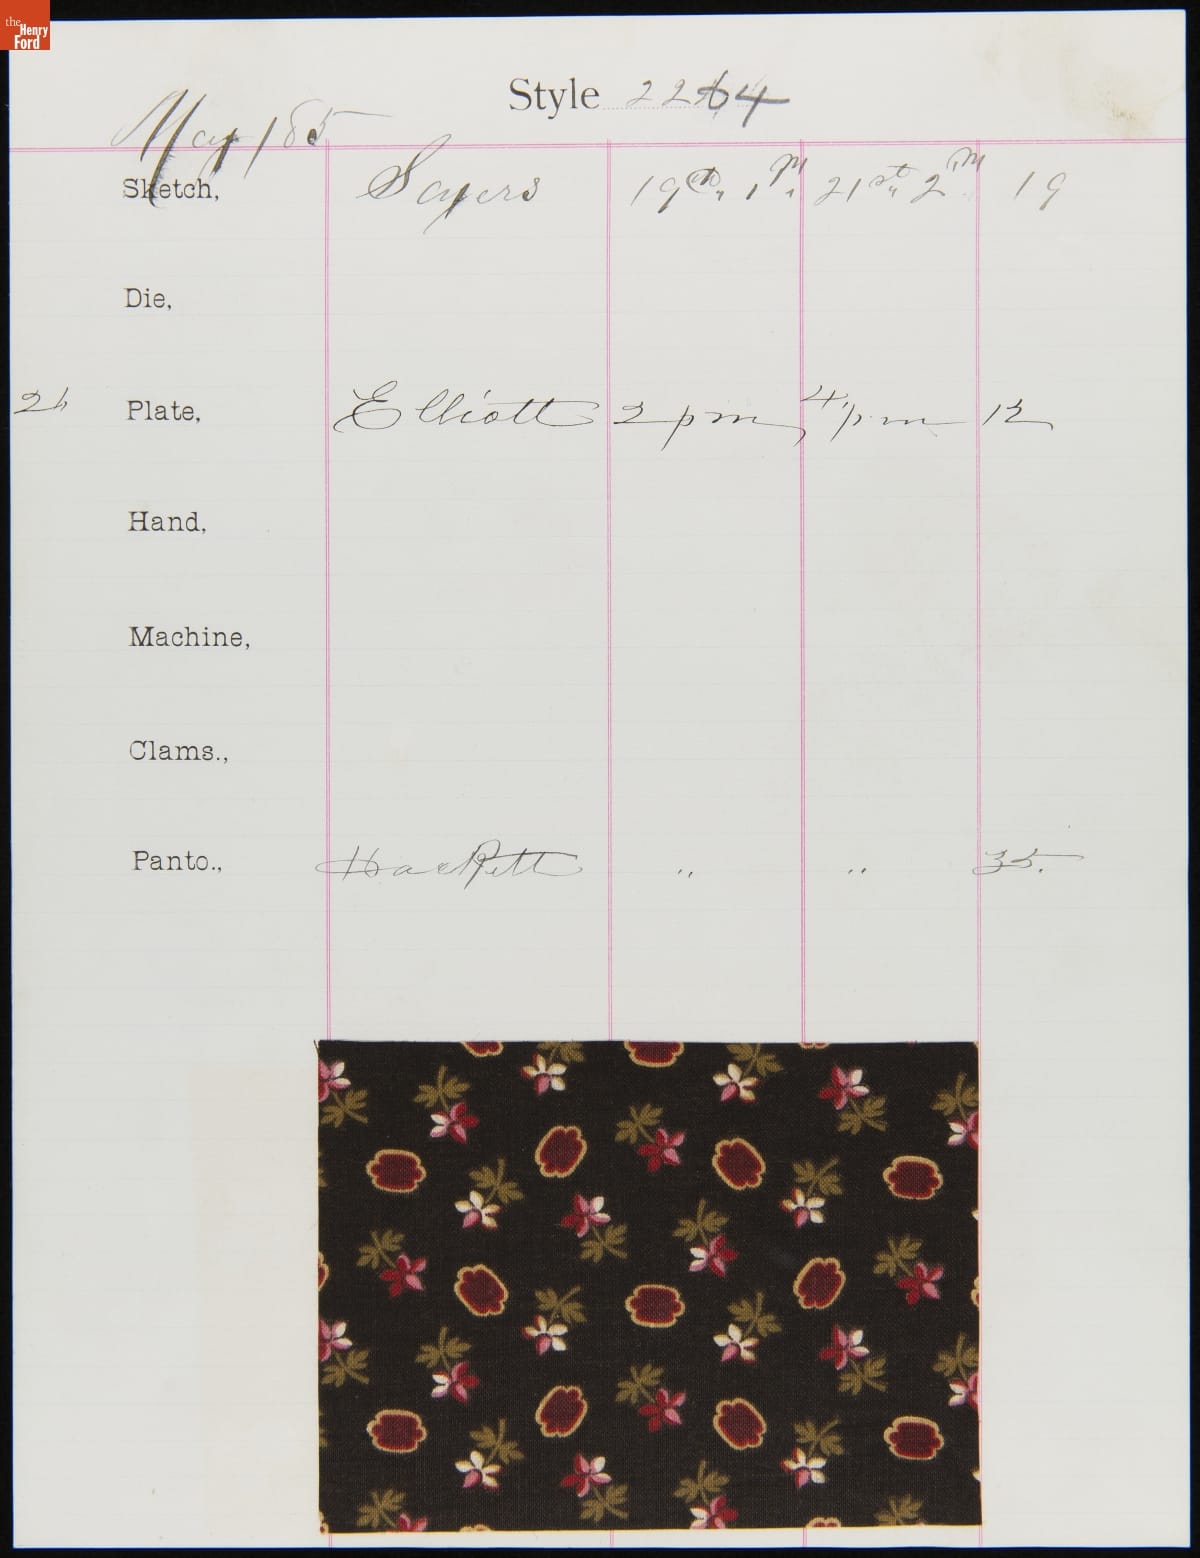 the Henry Ford
Style 2264
May / 85
Sketch, Sayers 19th, 1 PM, 21st, 2 PM 19
Die,
Plate, Elliott 2 pm 4 pm 12
Hand,
Machine,
Clams.,
Panto., Hackett " " 35.